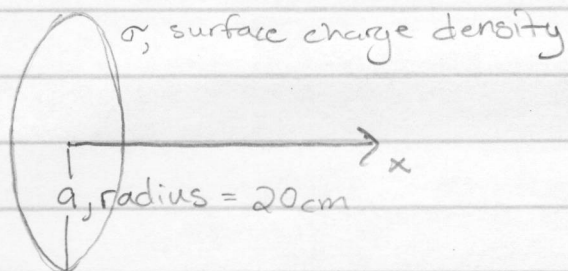 σ, surface charge density
x
a, radius = 20cm